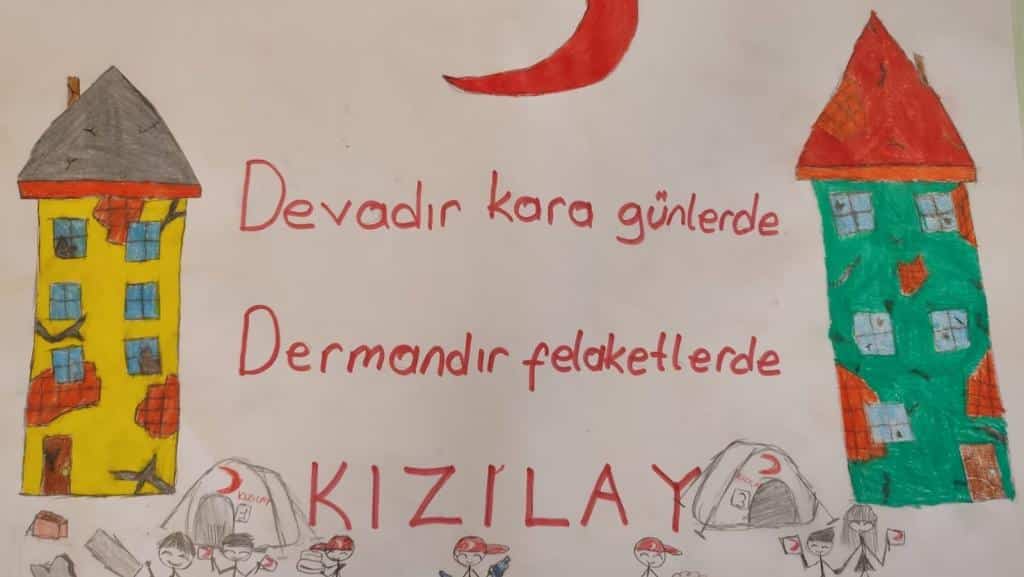 Devadır kara günlerde
Dermandır felaketlerde
KIZILAY
KIZILAY